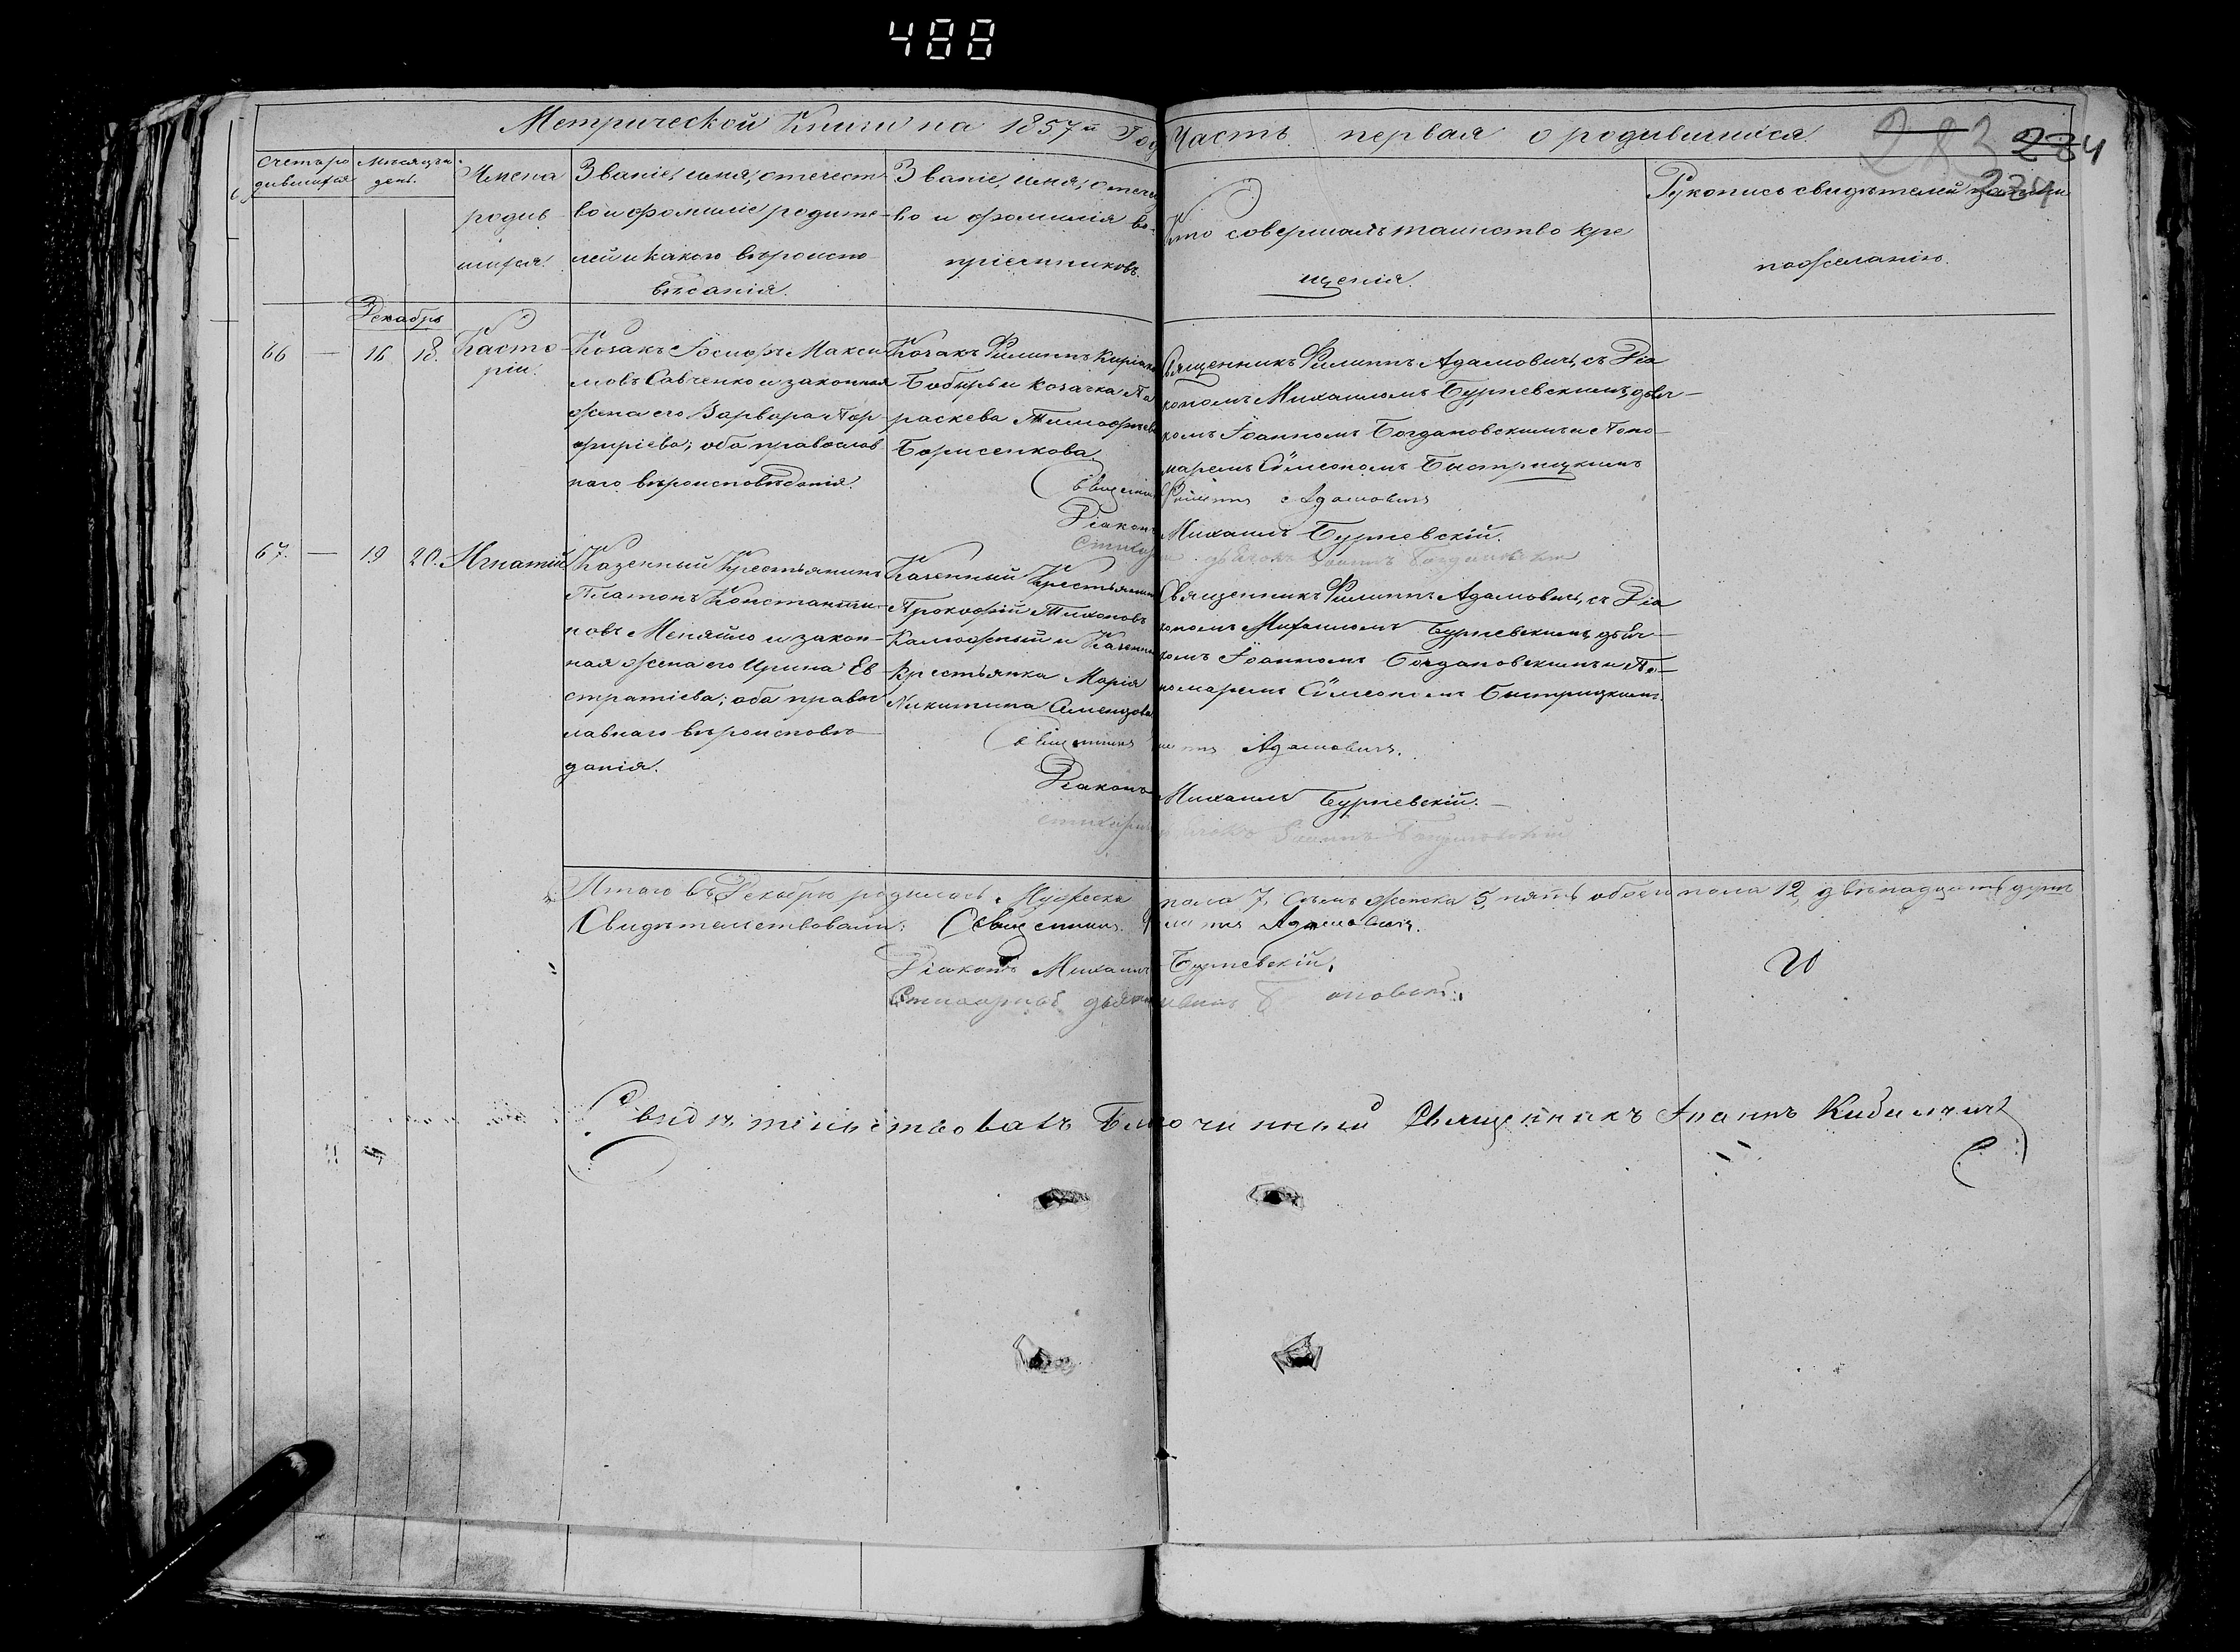 488
Метрической Книги на 1857й Год Часть первая о родившихся
283 234
234
Счетъ ро
дившихся
Мѣсяцъ и
день.
Имена
родив-
шихся.
Званіе, имя, отечест-
во и фамиліе родите-
лей и какого вѣроиспо-
вѣданія.
Званіе, имя, отечес
во и фамилія во-
пріемниковъ.
Кто совершалъ таинство кре
щенія.
Рукопись свидѣтелей
по желанію.
Декабрь
66 — 16 18.
Касто-
рій.
Козакъ Іосифъ Макси-
мовъ Савченко и законная
жена его Варвара Пор-
фиріева; оба православ
наго вѣроисповѣданія.
Козакъ Филиппъ
Бобырь и козачка Па
раскева Тимофѣева
Борисенкова.
Священникъ Филиппъ Адамовичь, съ Діа
кономъ Михаиломъ Бурневскимъ, дьяч-
комъ Іоанномъ Богдановскимъ и Поно-
маремъ Сѵмеономъ Быстрицкимъ
Священникъ Филиппъ Адамовичъ
Діаконъ Михаилъ Бурневскій.
дьячокъ Іоаннъ Богдановскій
67. — 19 20.
Игнатій
Казенный Крестьянинъ
Платонъ Константи-
новъ Меняйло и закон-
ная жена его Ирина Ев
стратіева; оба правос-
лавнаго вѣроисповѣ-
данія.
Казенный Крестьянинъ
Прокофій Тихоновъ
и Казенная
Крестьянка Марія
Никитина
Священникъ Филиппъ Адамовичь, съ Діа
кономъ Михаиломъ Бурневскимъ, дьяч-
комъ Іоанномъ Богдановскимъ и По-
номаремъ Сѵмеономъ Быстрицкимъ.
Священникъ Филиппъ Адамовичъ.
Діаконъ Михаилъ Бурневскій.
дьячокъ Іоаннъ Богдановскій
Итого въ Декабрѣ родилось: Мужеска пола 7, семь женска 5, пять обоего пола 12, двѣнадцать душъ
Свидѣтельствовали: Священникъ Филиппъ Адамовичъ.
Діаконъ Михаилъ Бурневскій,
Стихарный дьячокъ
Свидѣтельствовалъ Благочинный Священникъ Іоаннъ